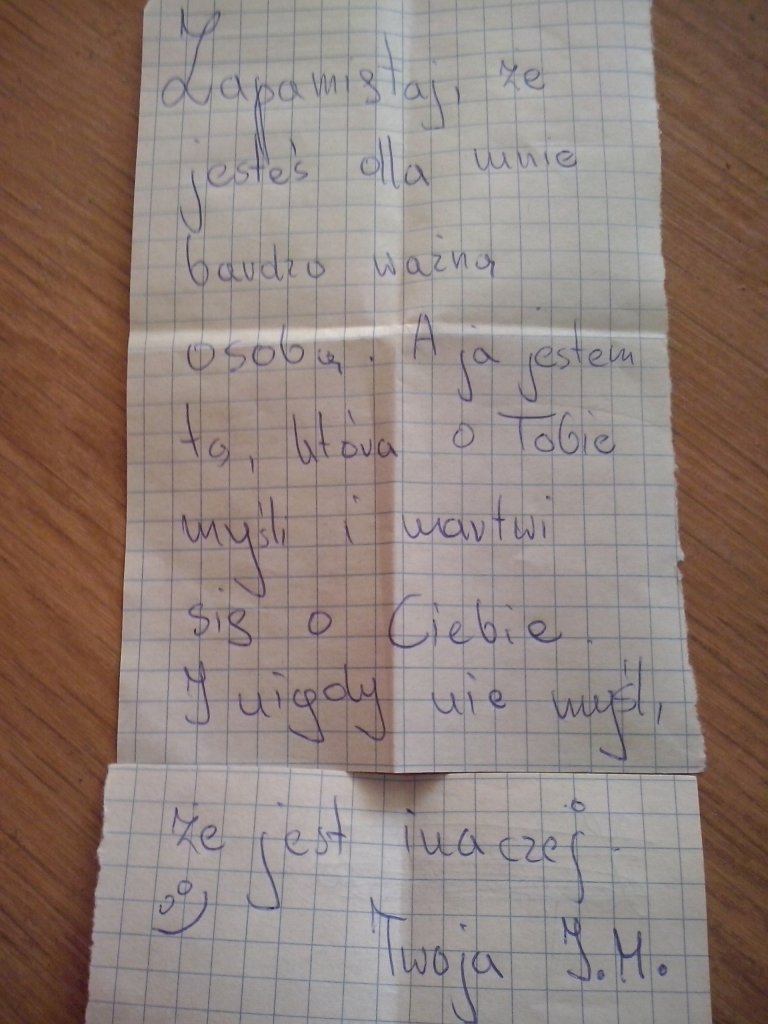 Zapamiętaj, że
jesteś dla mnie
bardzo ważną
osobą. A ja jestem
tą, która o Tobie
myśli i martwi
się o Ciebie.
I nigdy nie myśl,
że jest inaczej.
Twoja J.M.